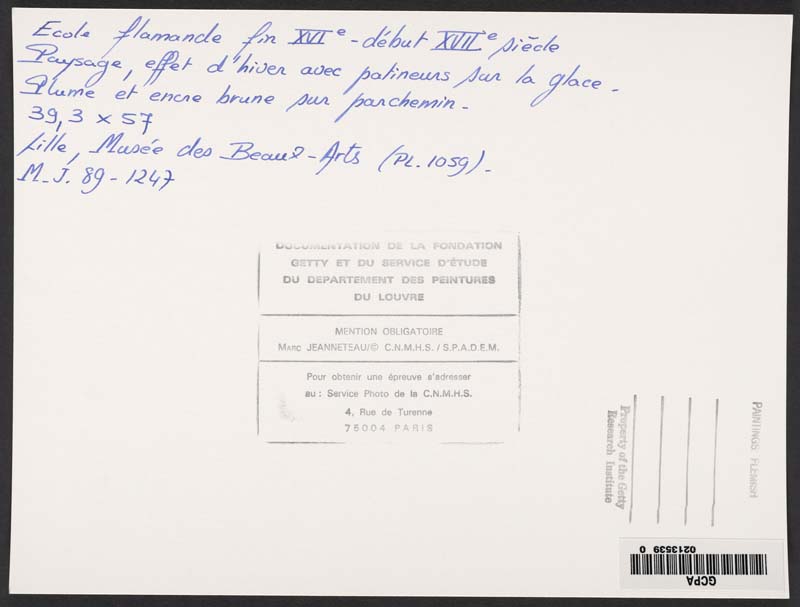 Ecole flamande fin XVIe - début XVIIe siècle
Paysage, effet d'hiver avec patineurs sur la glace -
Plume et encre brune sur parchemin -
39,3 x 57
Lille, Musée des Beaux-Arts (PL. 1059) -
M.J. 89-1247
DOCUMENTATION DE LA FONDATION
GETTY ET DU SERVICE D'ÉTUDE
DU DEPARTEMENT DES PEINTURES
DU LOUVRE
MENTION OBLIGATOIRE
MARC JEANNETEAU/© C.N.M.H.S. / S.P.A.D.E.M.
Pour obtenir une épreuve s'adresser
au : Service Photo de la C.N.M.H.S.
4, Rue de Turenne
75004 PARIS
PAINTINGS FLEMISH
Property of the Getty
Research Institute
GCPA
0213539 0